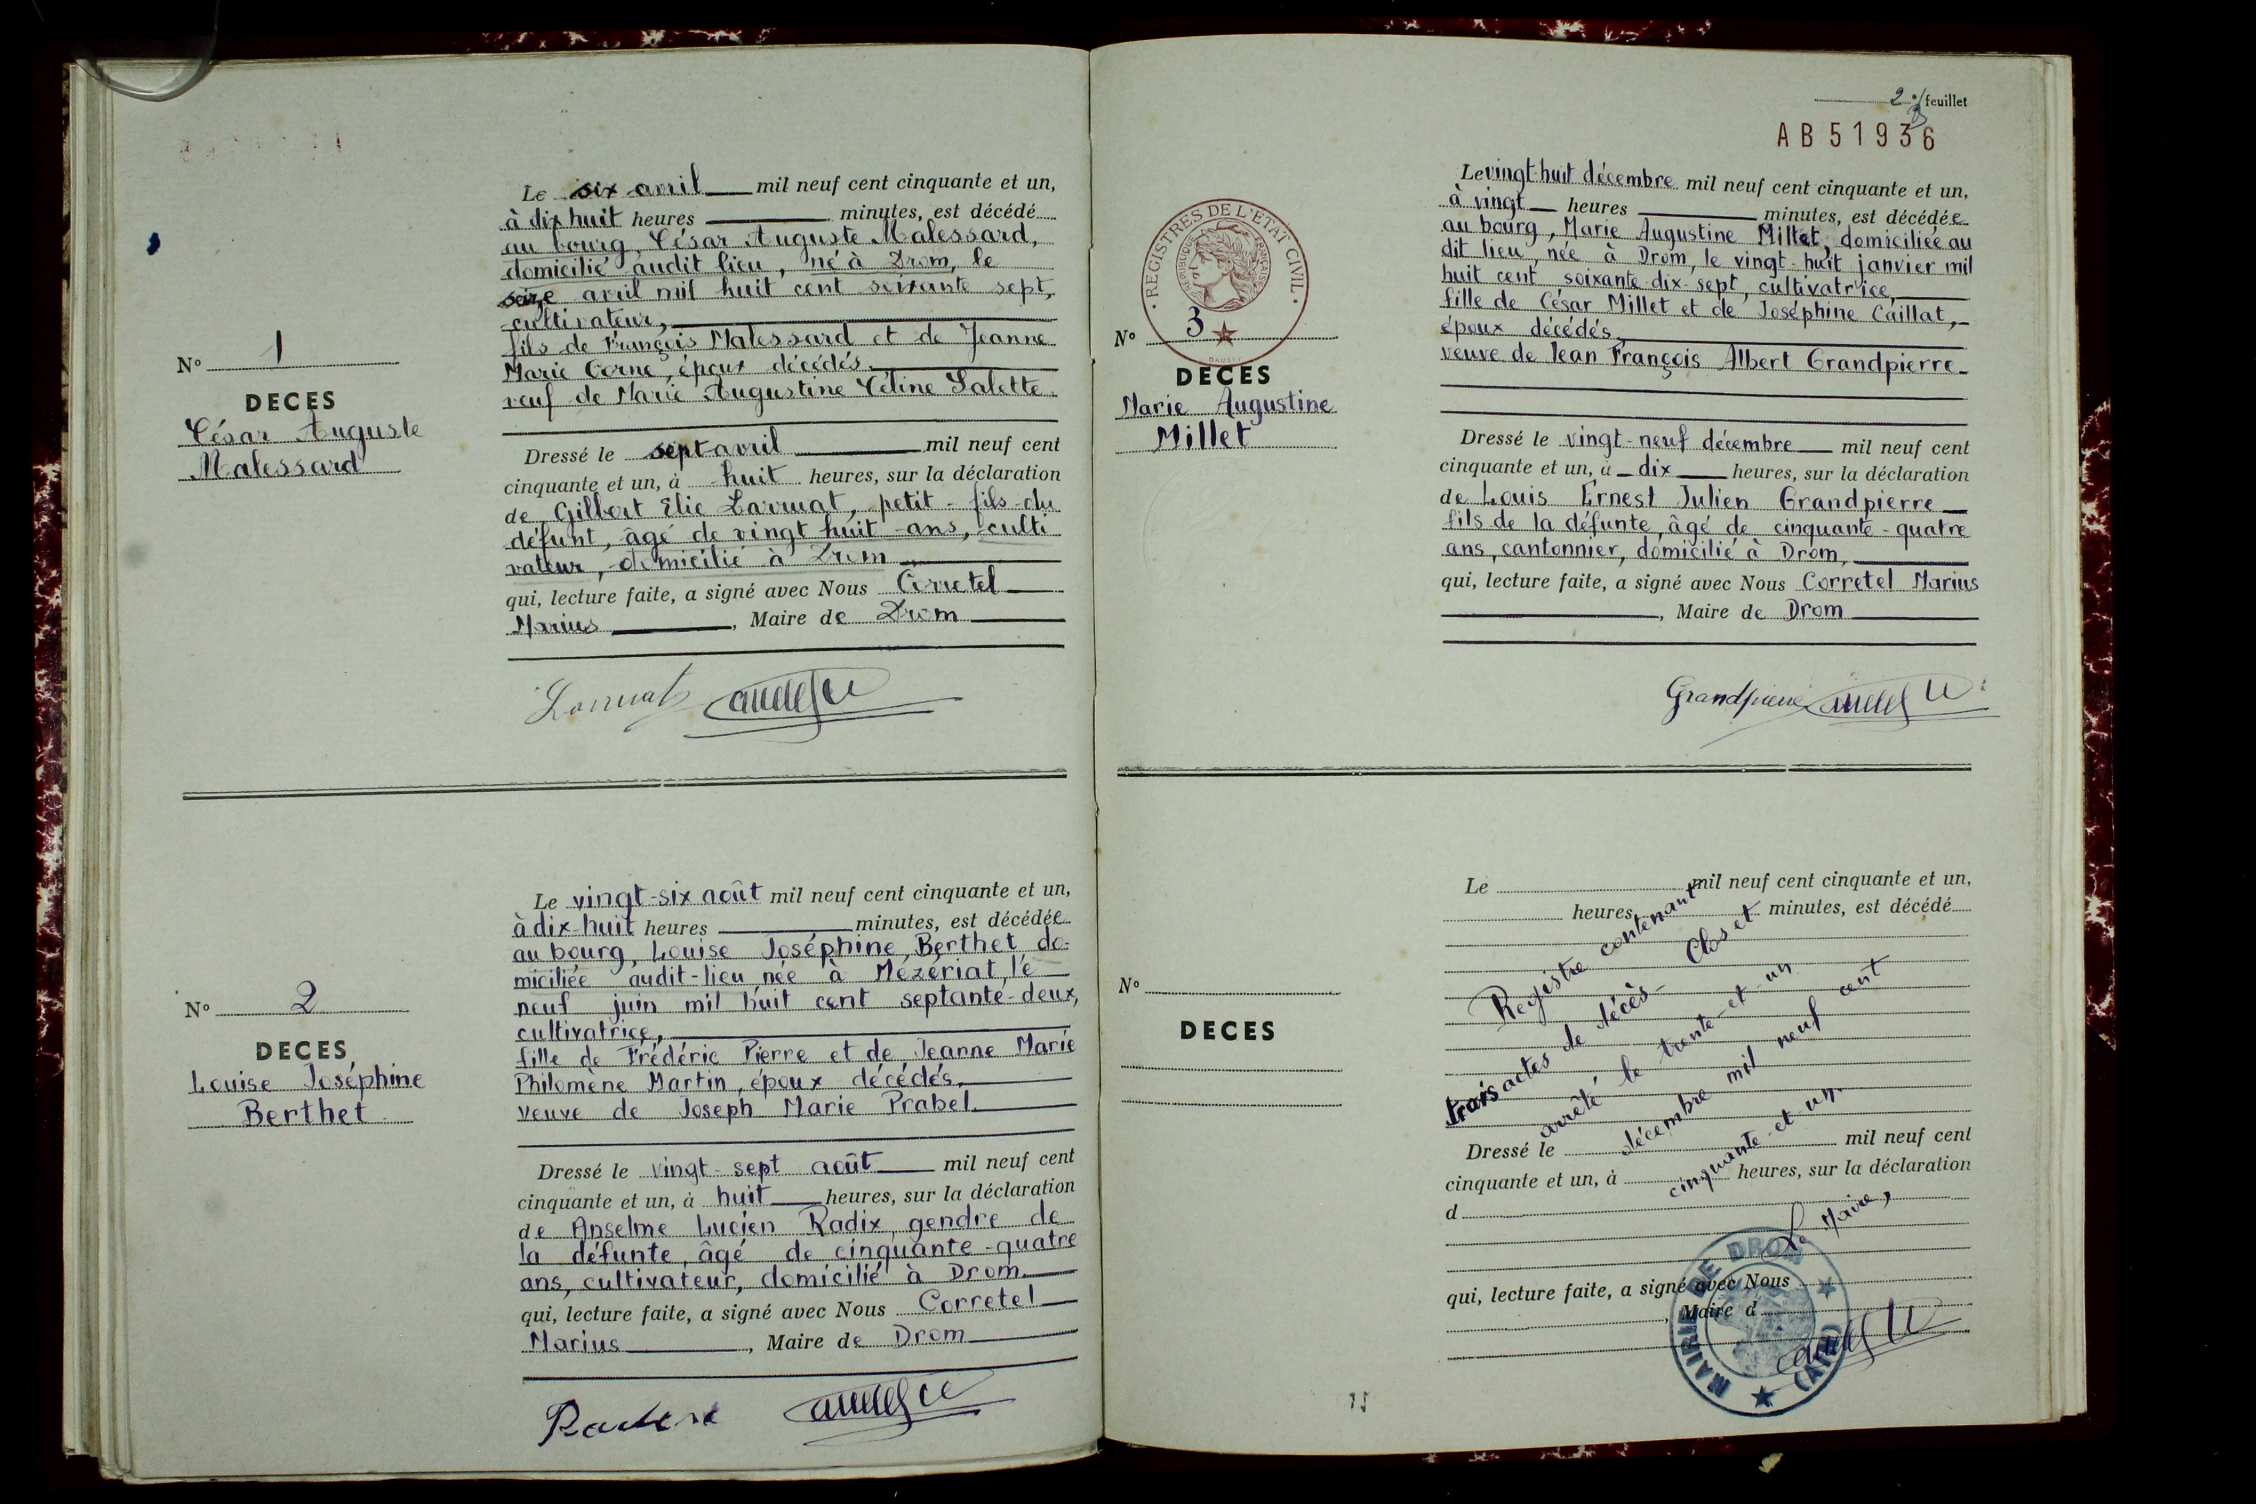 Le six avril mil neuf cent cinquante et un,
à dix huit heures minutes, est décédé
au bourg, César Auguste Malessard,
domicilié audit lieu, né à Drom, le
seize avril mil huit cent soixante sept,
cultivateur,
fils de François Malessard et de Jeanne
Marie Cerne, époux décédés
veuf de Marie Augustine Céline Salette
Nº 1
DECES
César Auguste
Malessard
Dressé le sept avril mil neuf cent
cinquante et un, à huit heures, sur la déclaration
de Gilbert Elie Larmat, petit-fils du
défunt, âgé de vingt huit ans, culti
vateur, domicilié à Drom
qui, lecture faite, a signé avec Nous Corretel
Marius, Maire de Drom
Nº 2
DECES
Louise Joséphine
Berthet
Le vingt-six août mil neuf cent cinquante et un,
à dix-huit heures minutes, est décédée
au bourg, Louise Joséphine Berthet do-
miciliée audit-lieu née à Mézériat, le
neuf juin mil huit cent septante-deux,
cultivatrice,
fille de Frédéric Pierre et de Jeanne Marie
Philomène Martin, époux décédés,
veuve de Joseph Marie Prabel
Dressé le vingt-sept août mil neuf cent
cinquante et un, à huit heures, sur la déclaration
de Anselme Lucien Radix gendre de
la défunte, âgé de cinquante-quatre
ans, cultivateur, domicilié à Drom
qui, lecture faite, a signé avec Nous Corretel
Marius, Maire de Drom
2e feuillet
AB51936
REGISTRES DE L'ETAT CIVIL
Nº 3
DECES
Marie Augustine
Millet
Le vingt-huit décembre mil neuf cent cinquante et un,
à vingt heures minutes, est décédée
au bourg, Marie Augustine Millet, domiciliée au
dit lieu, née à Drom, le vingt-huit janvier mil
huit cent soixante-dix-sept, cultivatrice,
fille de César Millet et de Joséphine Caillat,
époux décédés
veuve de Jean François Albert Grandpierre
Dressé le vingt-neuf décembre mil neuf cent
cinquante et un, à dix heures, sur la déclaration
de Louis Ernest Julien Grandpierre
fils de la défunte, âgé de cinquante-quatre
ans, cantonnier, domicilié à Drom,
qui, lecture faite, a signé avec Nous Corretel Marius
, Maire de Drom
Grandpierre
Nº
DECES
Le mil neuf cent cinquante et un,
heures minutes, est décédé
Dressé le mil neuf cent
cinquante et un, à heures, sur la déclaration
d
qui, lecture faite, a signé avec Nous
, Maire d
Registre contenant
trois actes de décès - Clos et
arrêté le trente-et-un
décembre mil neuf cent
cinquante-et-un.
Le Maire,
MAIRIE DE DROM
(AIN)